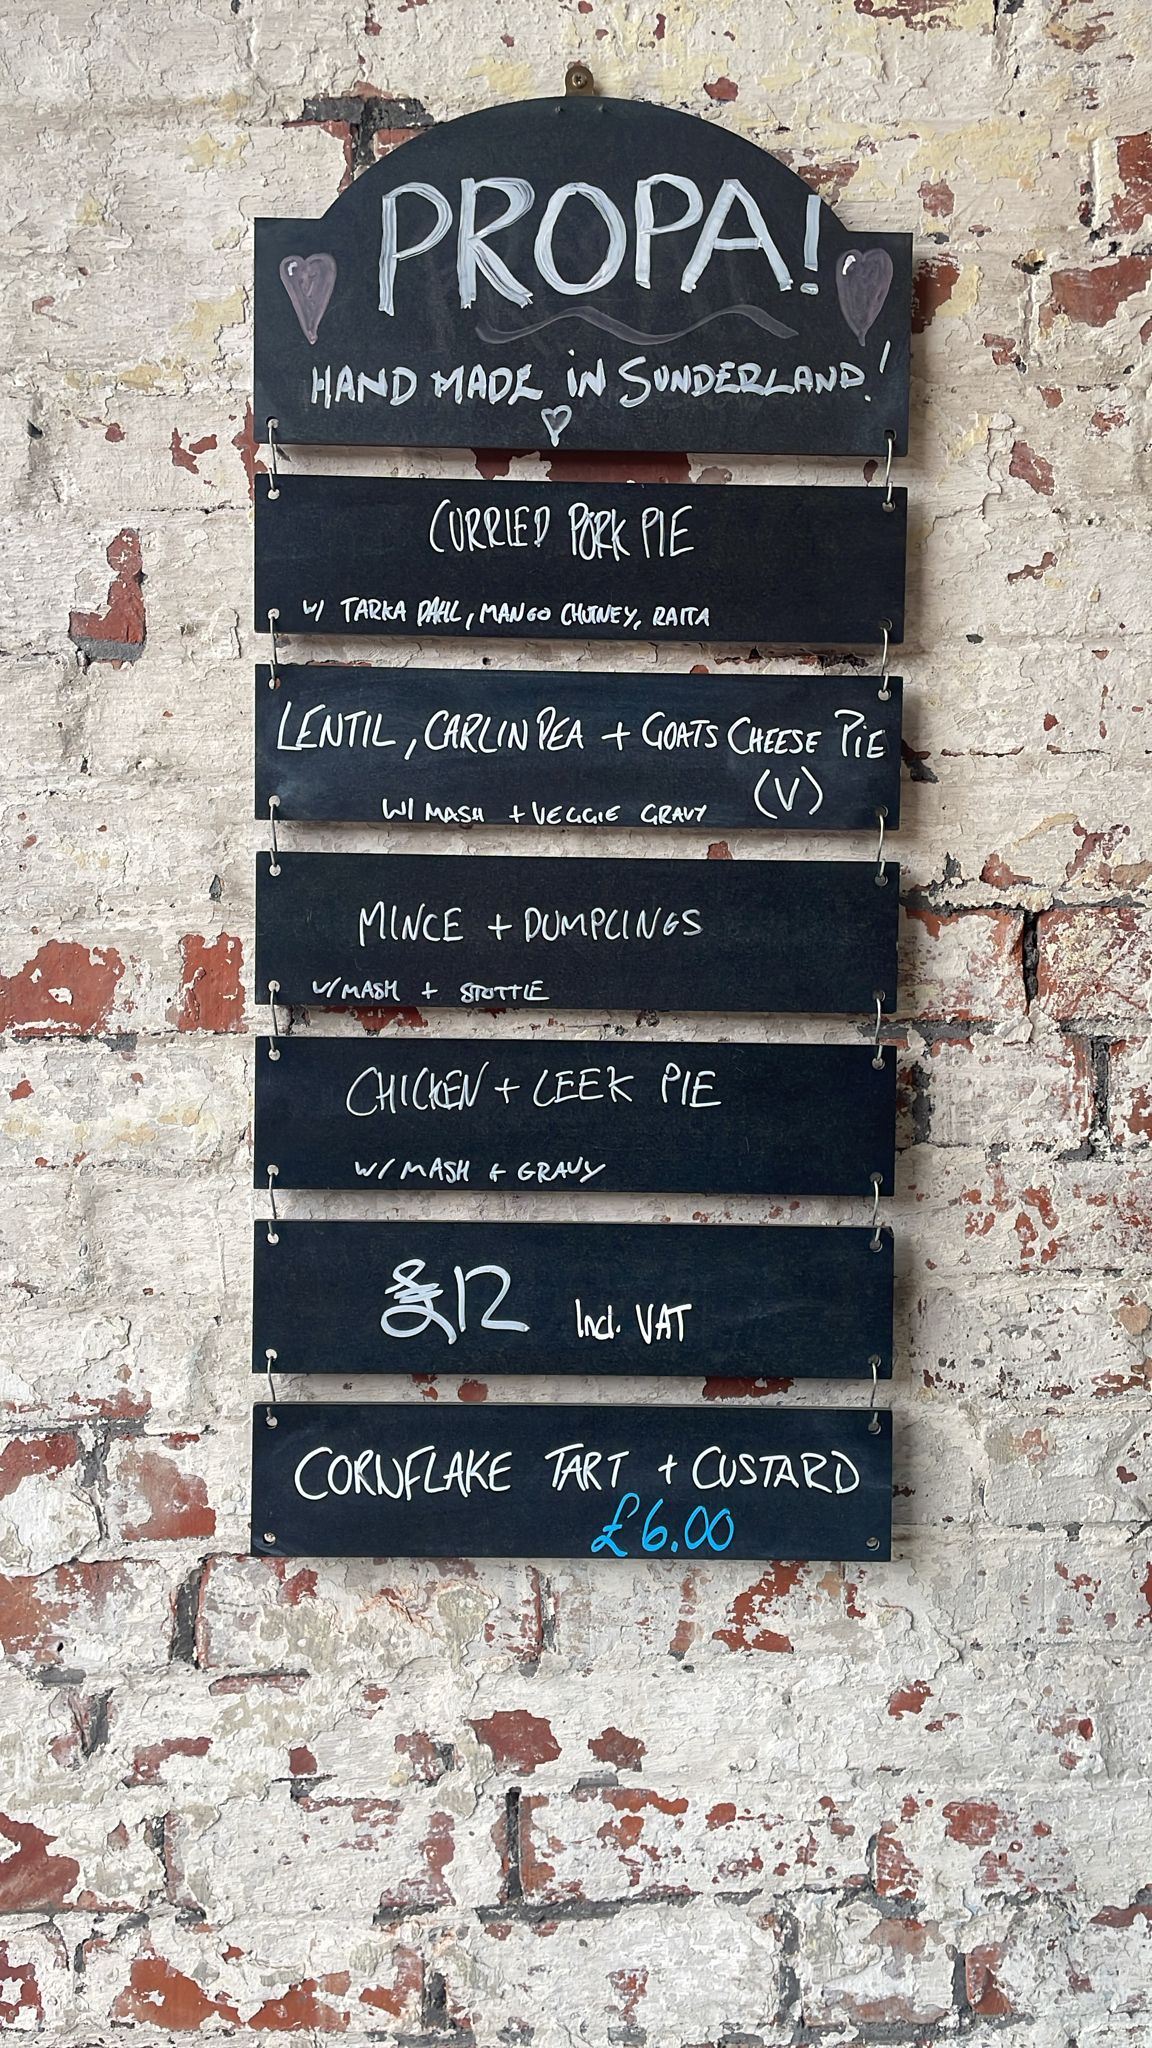 PROPA!
HAND MADE IN SUNDERLAND!
CURRIED PORK PIE
W/ TARKA DAHL, MANGO CHUTNEY, RAITA
LENTIL, CARLIN PEA + GOATS CHEESE PIE
(V)
W/ MASH + VEGGIE GRAVY
MINCE + DUMPLINGS
W/ MASH + STOTTIE
CHICKEN + LEEK PIE
W/ MASH + GRAVY
£12 Incl. VAT
CORNFLAKE TART + CUSTARD
£6.00